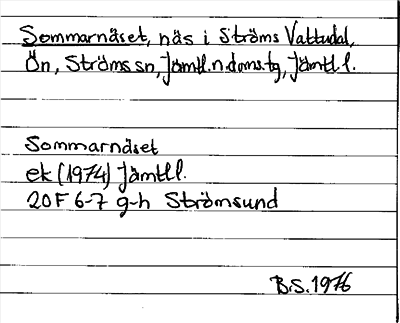 Sommarnäset, näs i Ströms Vattudal,
Ön, Ströms sn, Jämtl. n. doms. tg, Jämtl. l.
Sommarnäset
ek (1974) Jämtl l.
20F 6-7 g-h Strömsund
B.S. 1976